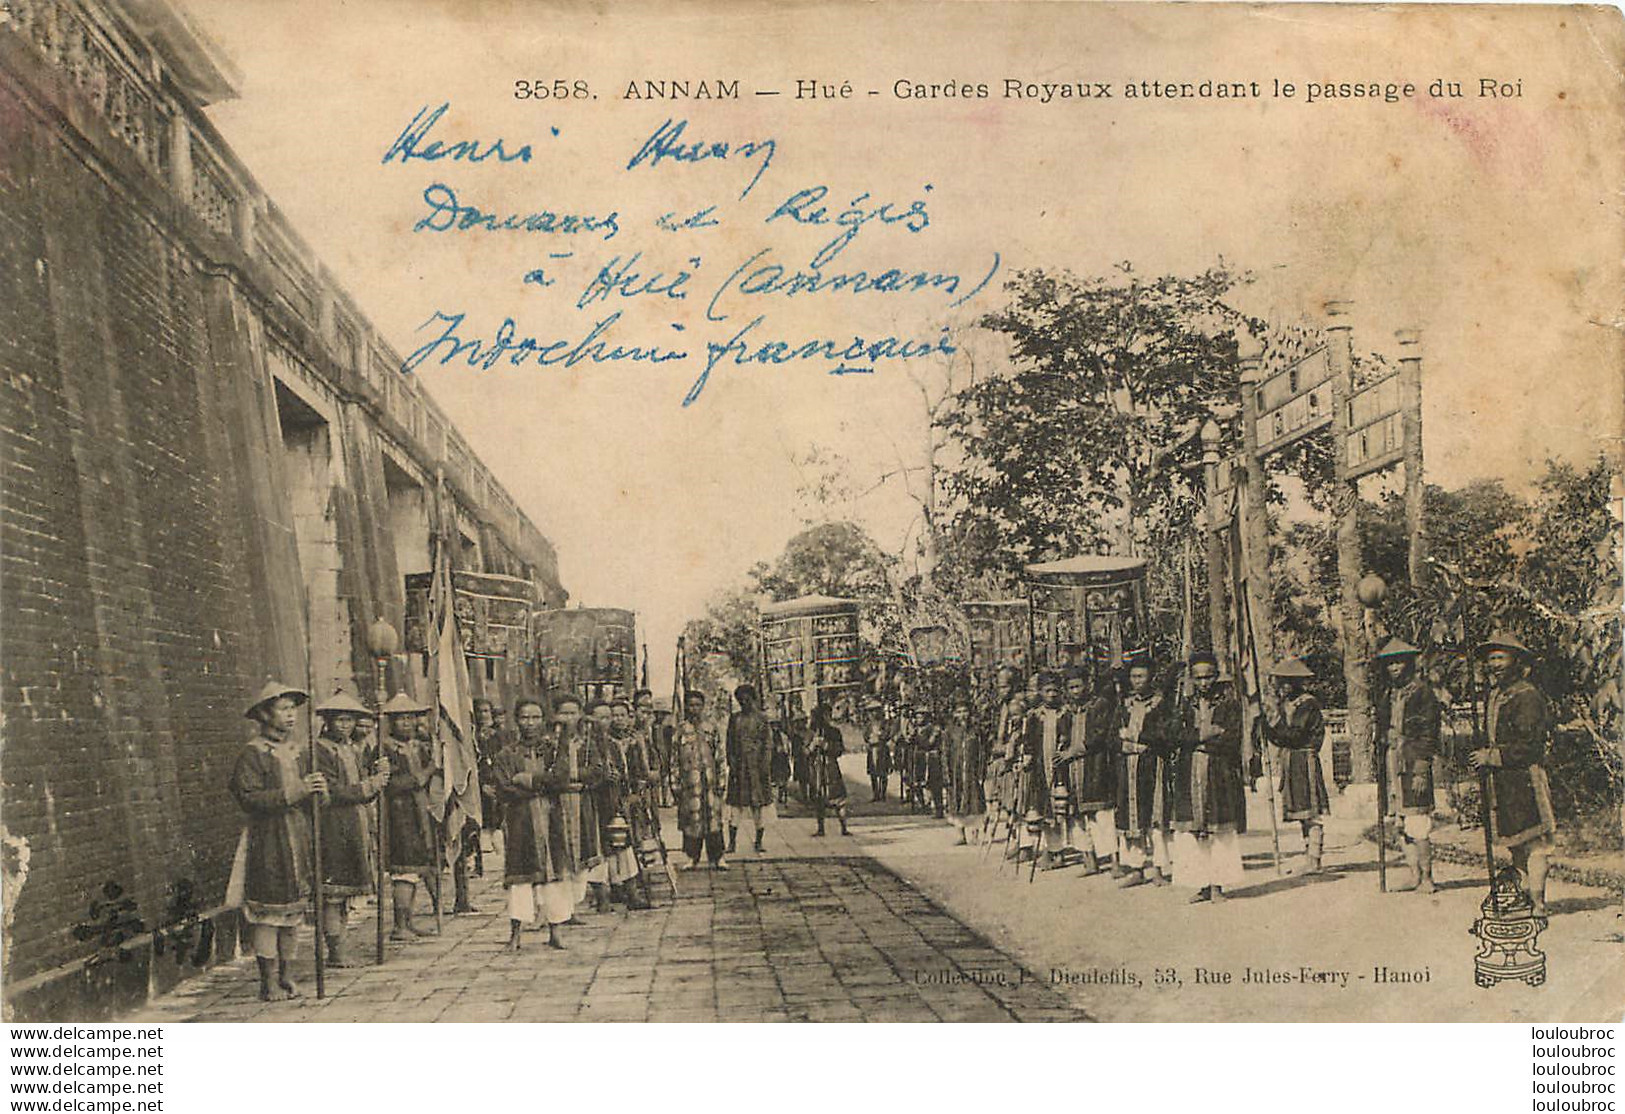 3558. ANNAM — Hué - Gardes Royaux attendant le passage du Roi
Henri
Douanes et Régis
à Hué (Annam)
Indochine française
雲南
Collection P. Dieulefils, 53, Rue Jules-Ferry - Hanoi
www.delcampe.net
www.delcampe.net
www.delcampe.net
www.delcampe.net
www.delcampe.net
louloubroc
louloubroc
louloubroc
louloubroc
louloubroc